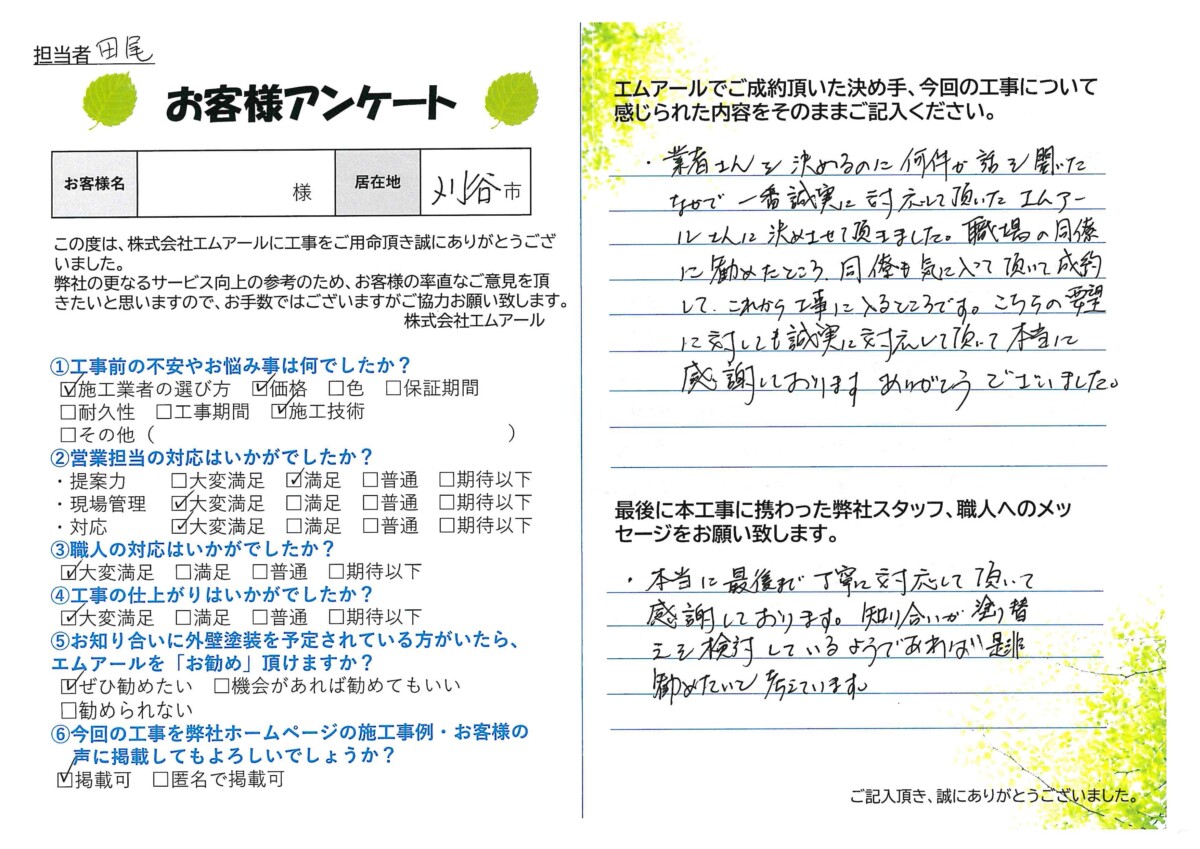 担当者 田尾
お客様アンケート
お客様名 様 居在地 刈谷市
この度は、株式会社エムアールに工事をご用命頂き誠にありがとうござ
いました。
弊社の更なるサービス向上の参考のため、お客様の率直なご意見を頂
きたいと思いますので、お手数ではございますがご協力お願い致します。
株式会社エムアール
①工事前の不安やお悩み事は何でしたか？
☑施工業者の選び方 ☑価格 □色 □保証期間
□耐久性 □工事期間 ☑施工技術
□その他（ ）
②営業担当の対応はいかがでしたか？
・提案力 □大変満足 ☑満足 □普通 □期待以下
・現場管理 ☑大変満足 □満足 □普通 □期待以下
・対応 ☑大変満足 □満足 □普通 □期待以下
③職人の対応はいかがでしたか？
☑大変満足 □満足 □普通 □期待以下
④工事の仕上がりはいかがでしたか？
☑大変満足 □満足 □普通 □期待以下
⑤お知り合いに外壁塗装を予定されている方がいたら、
エムアールを「お勧め」頂けますか？
☑ぜひ勧めたい □機会があれば勧めてもいい
□勧められない
⑥今回の工事を弊社ホームページの施工事例・お客様の
声に掲載してもよろしいでしょうか？
☑掲載可 □匿名で掲載可
エムアールでご成約頂いた決め手、今回の工事について
感じられた内容をそのままご記入ください。
・業者さんを決めるのに何件か話を聞いた
なかで一番誠実に対応して頂いたエムアー
ルさんに決めさせて頂きました。職場の同僚
に勧めたところ、同僚も気に入って頂いて成約
して、これから工事に入るところです。こちらの要望
に対しても誠実に対応して頂いて本当に
感謝しております ありがとうございました。
最後に本工事に携わった弊社スタッフ、職人へのメッ
セージをお願い致します。
・本当に最後まで丁寧に対応して頂いて
感謝しております。知り合いが塗り替
えを検討しているようであれば是非
勧めたいと考えています。
ご記入頂き、誠にありがとうございました。